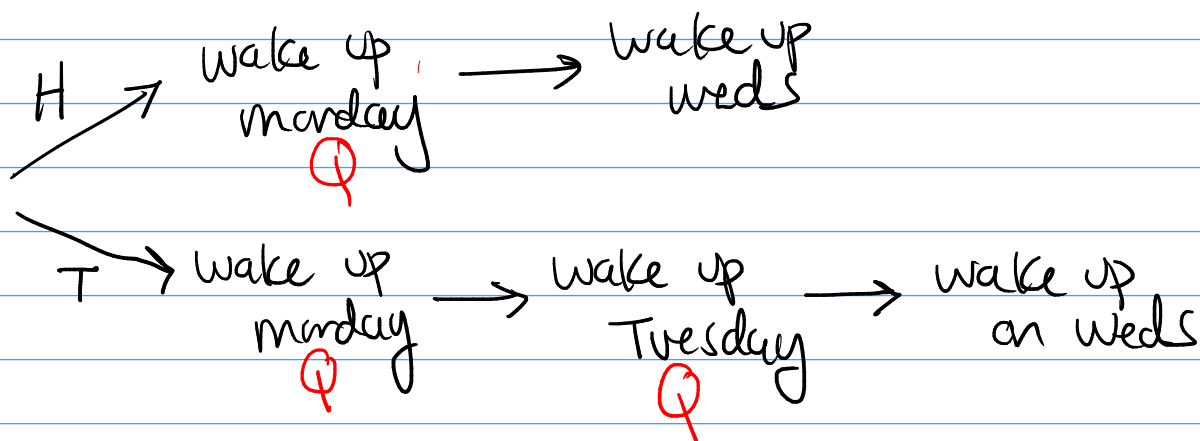 H
wake up
monday
Q
wake up
weds
T
wake up
monday
Q
wake up
Tuesday
Q
wake up
on weds